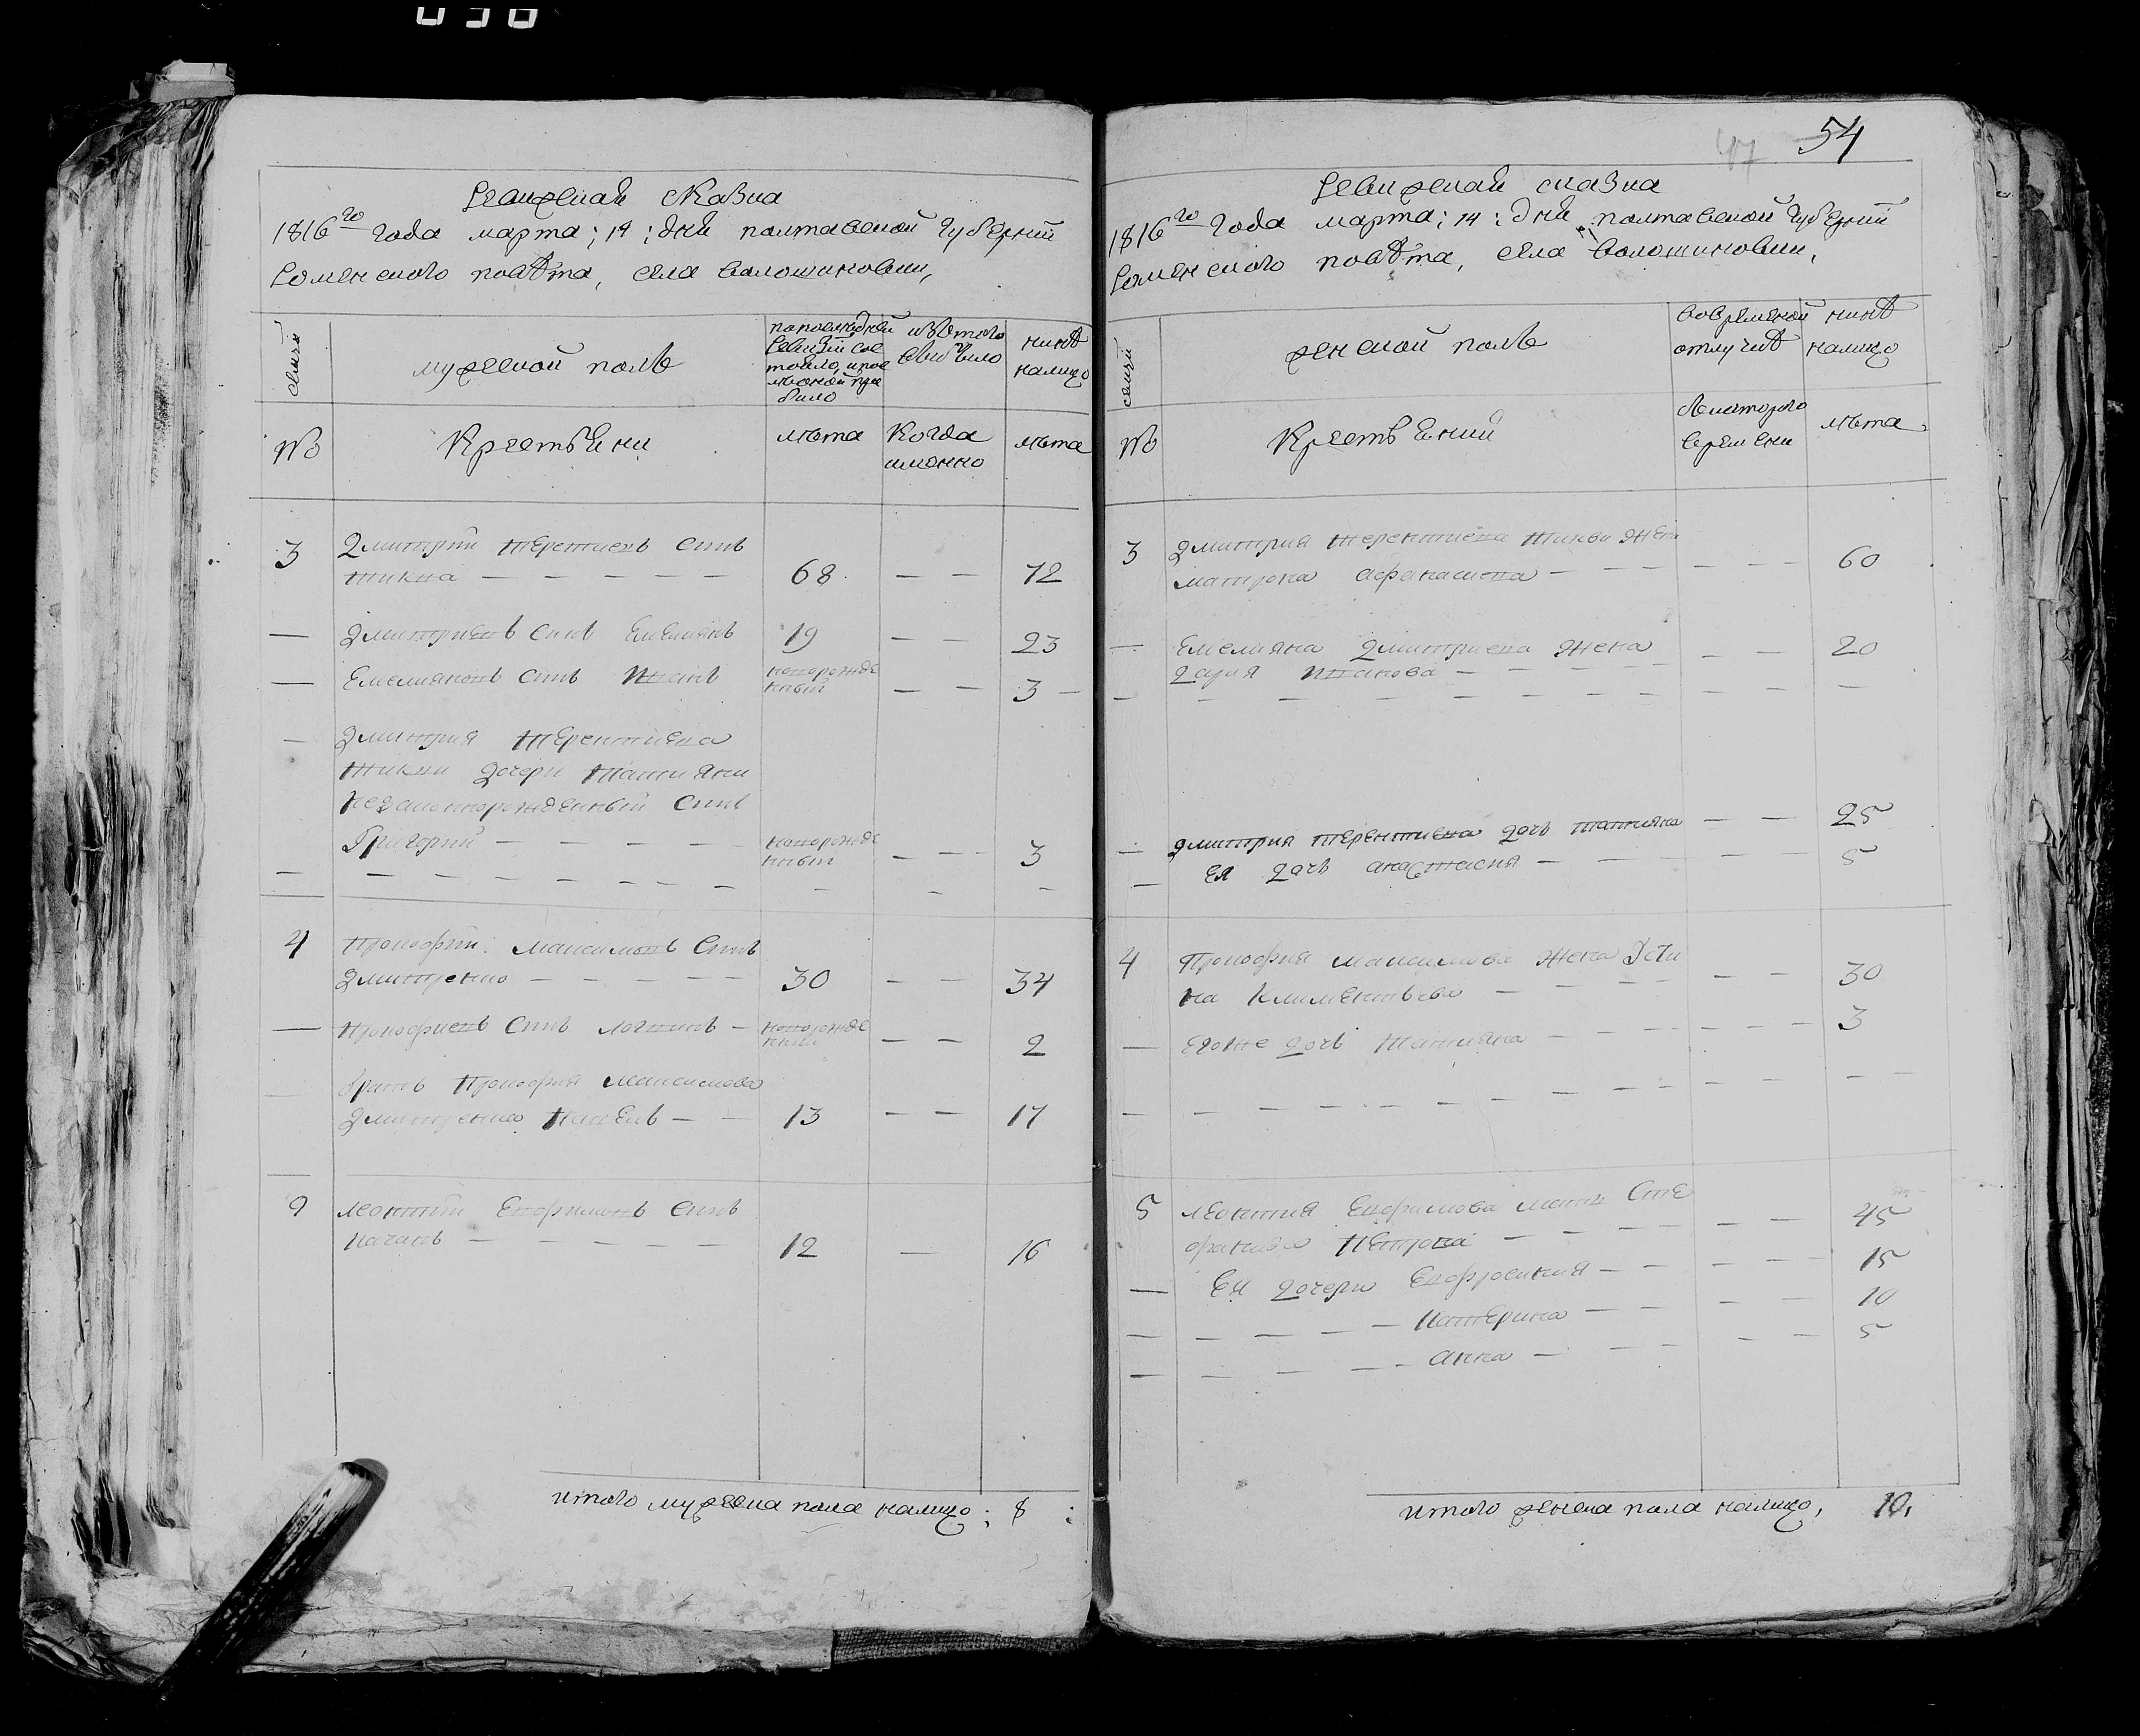 Ревизская сказка
1816го года марта; 14; дня полтавской губернии
Роменского повѣта, села волошиновки,
семьи
мужеской полъ
по последней ревизии состояло, и после оной прибыло
изъ того числа выбыло
нинѣ налицо
№
Крестьяни
лѣта
Когда именно
лѣта
3
Дмитрий терентиевъ синъ
тиква — — — — —
68
— —
72
—
Дмитриевъ синъ Емелиянъ
19
— —
23
—
Емелияновъ синъ Иванъ
новорожденный
— —
3 —
—
Дмитрия Терентиева
тикви дочери Татияни
незаконнорожденный синъ
Григорий — — — — —
новорожденный
— —
3
4
Прокофий: максимовъ синъ
Дмитренко — — — — —
30
— —
34
—
Прокофиевъ синъ логвинъ —
новорожденный
— —
2
—
братъ Прокофия максимова
Дмитренка Павелъ — —
13
— —
17
9
леонтий Евфимовъ синъ
— — — — —
12
—
16
итого мужеска пола налицо: 8 :
54
47
Ревизская сказка
1816го года марта; 14; дня полтавской губернии
Роменского повѣта, села волошиновки,
семьи
женской полъ
во временной отлучке
нинѣ налицо
№
Крестьяний
с которого времени
лѣта
3
Дмитрия терентиева тикви жена
матрона афанасиева — — — — —
60
—
Емелияна Дмитриева жена
Дария Иванова —
— —
20
—
Дмитрия терентиева дочь татияна
— —
25
—
Ея дочь анастасия —
— —
5
4
Прокофия максимова жена Усти
на климентьева —
— —
30
—
его же дочь татияна —
— — —
3
5
леонтия Евфимова мать Сте
фанида Петрова —
— —
45
—
Ея дочери Евфросиния —
— —
15
—
Катерина —
— —
10
—
анна —
— —
5
итого женска пола налицо, 10,